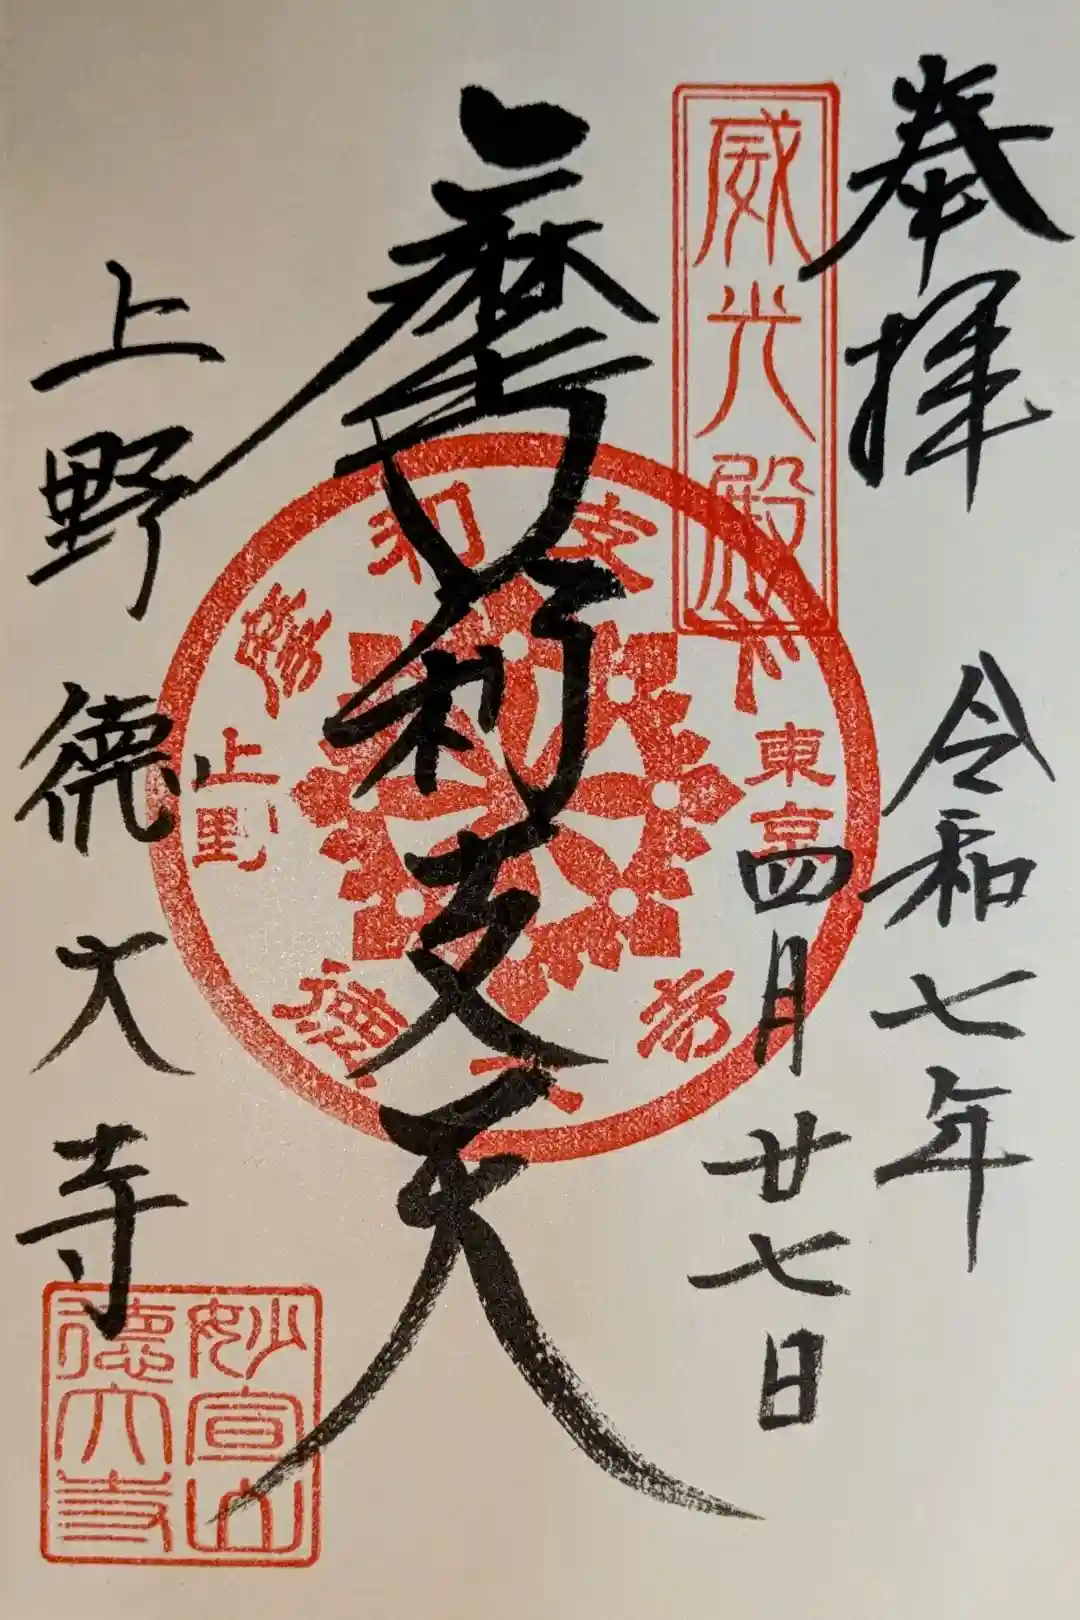 奉拝
威光殿
令和七年
四月廿七日
摩利支天
摩利支天
東京
上野
徳大寺
上野徳大寺
妙宣山
徳大寺